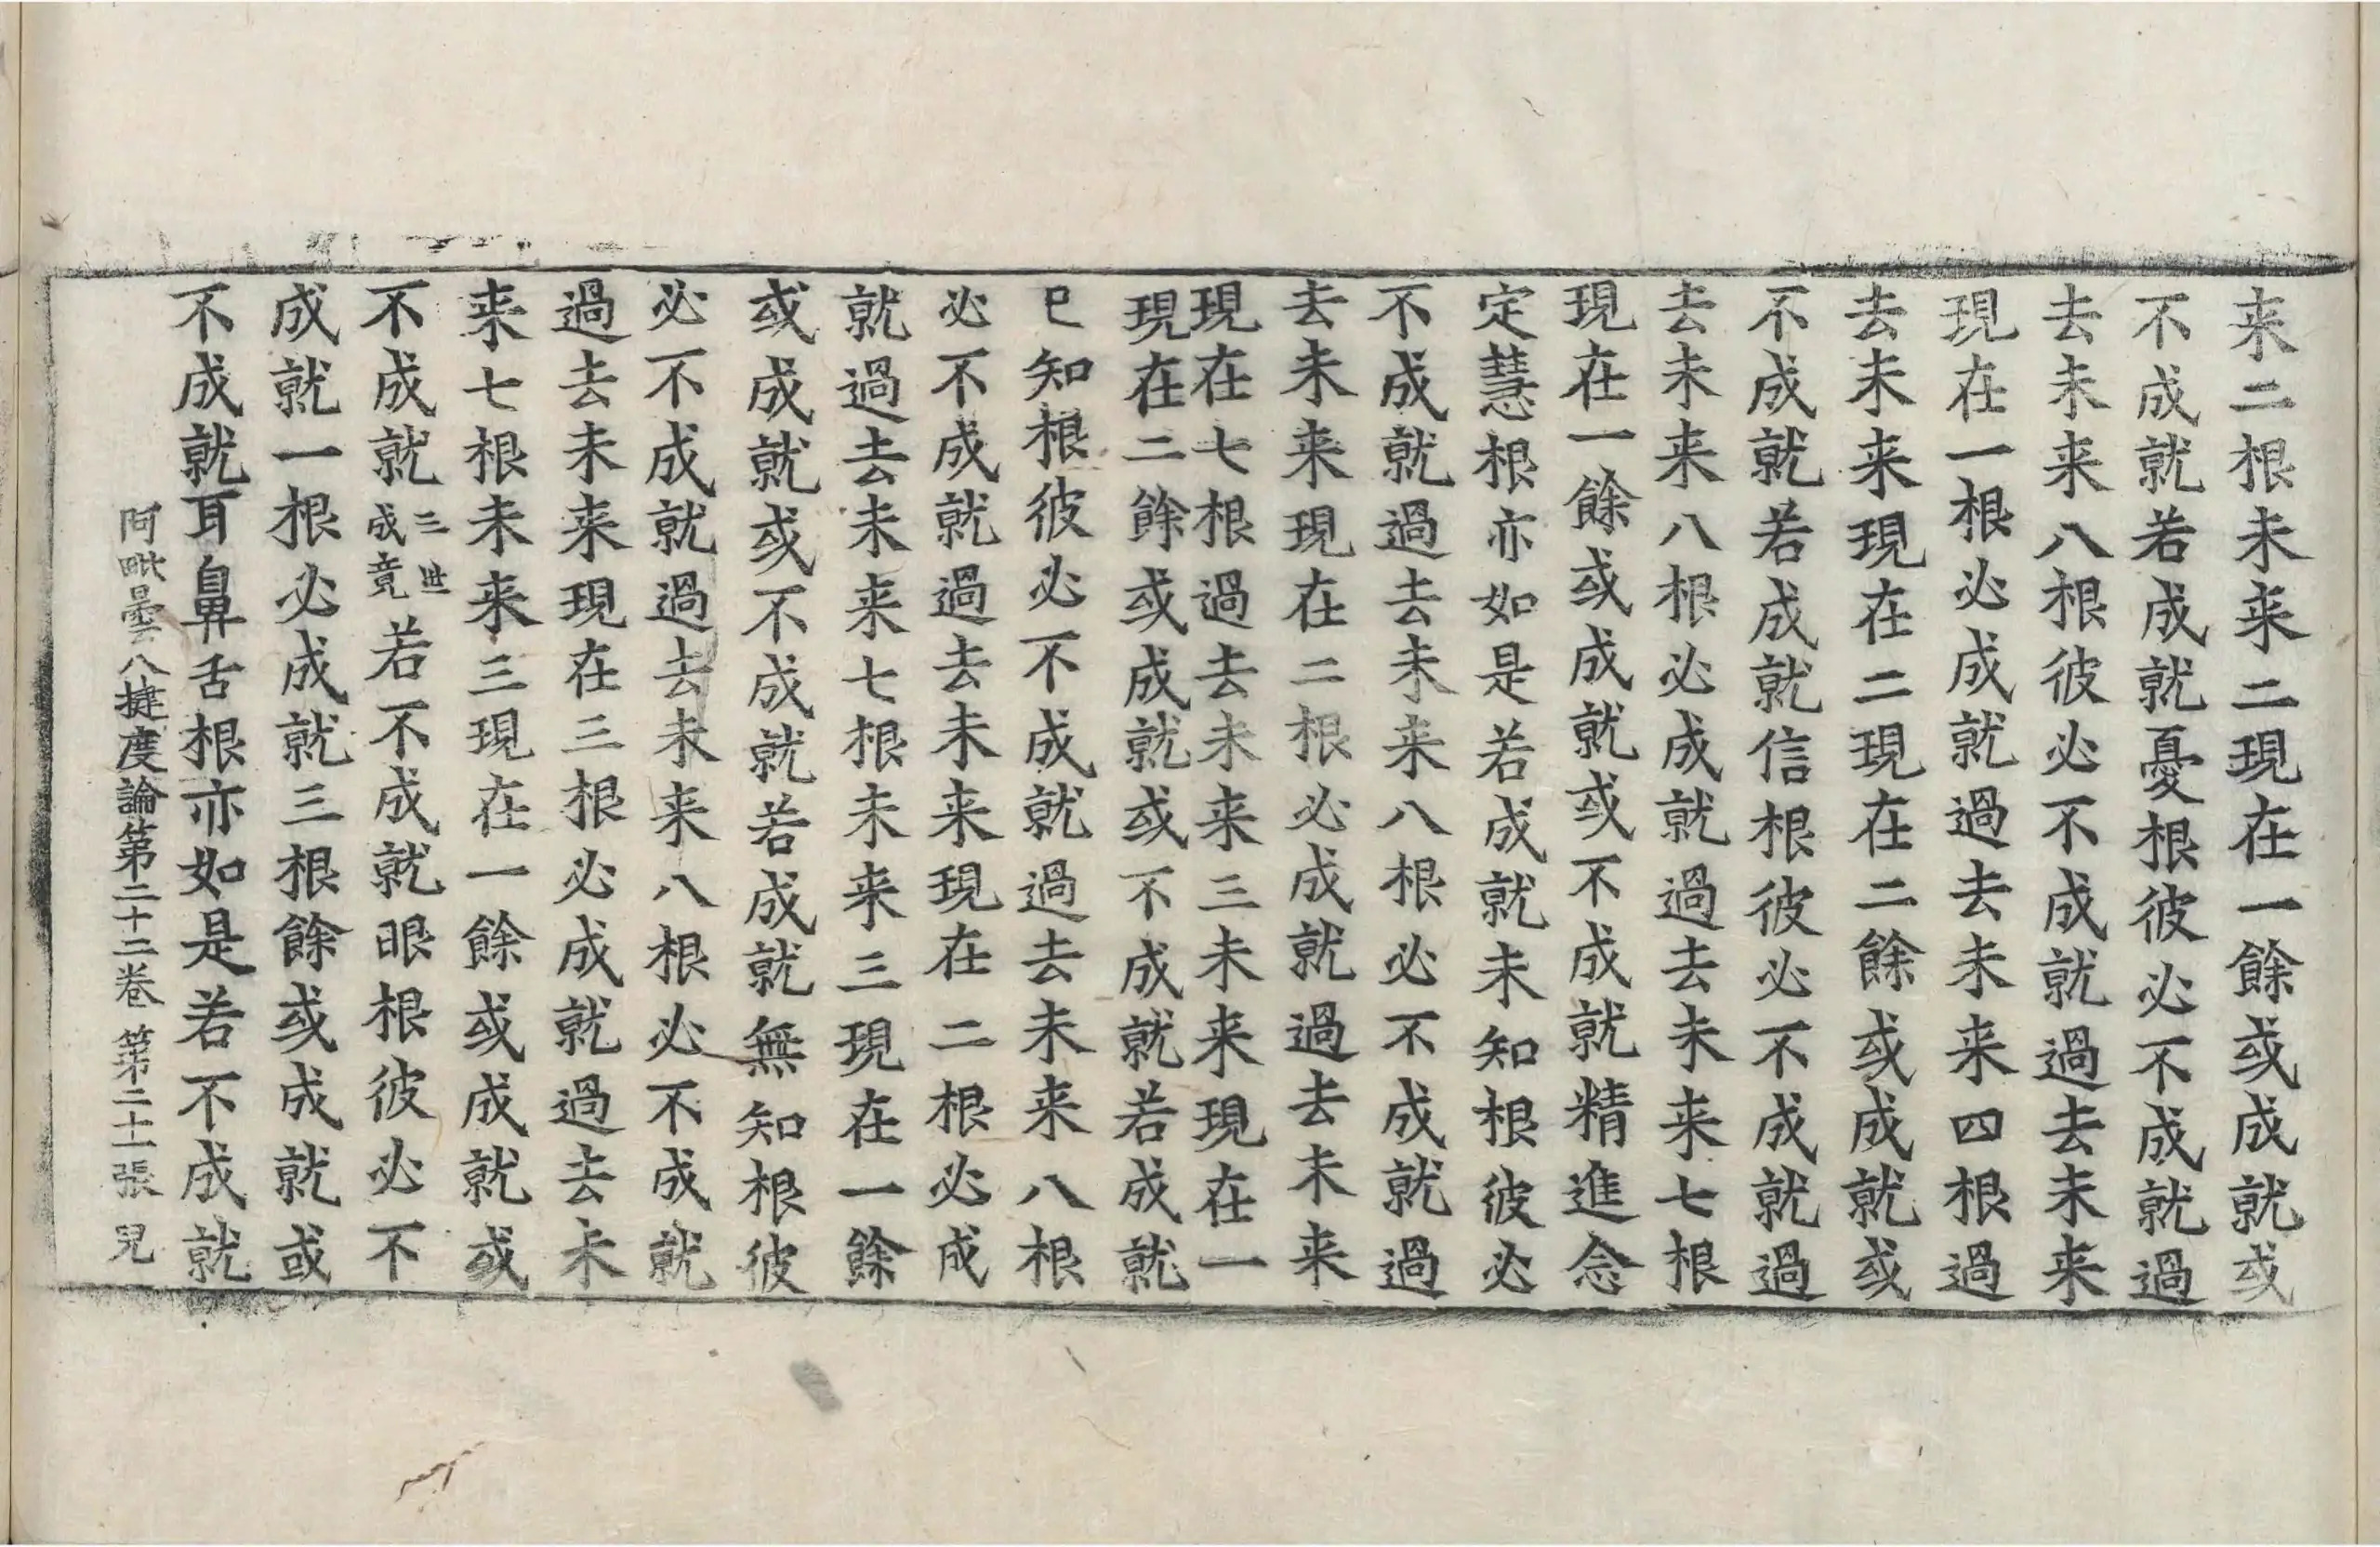 来二根未来二現在一餘或成就或
不成就若成就憂根彼必不成就過
去未来八根彼必不成就過去未来
現在一根必成就過去未来四根過
去未来現在二現在二餘或成就或
不成就若成就信根彼必不成就過
去未来八根必成就過去未来七根
現在一餘或成就或不成就精進念
定慧根亦如是若成就未知根彼必
不成就過去未来八根必不成就過
去未来現在二根必成就過去未来
現在七根過去未来三未来現在一
現在二餘或成就或不成就若成就
已知根彼必不成就過去未来八根
必不成就過去未来現在二根必成
就過去未来七根未来三現在一餘
或成就或不成就若成就無知根彼
必不成就過去未来八根必不成就
過去未来現在三根必成就過去未
来七根未来三現在一餘或成就或
不成就三世成竟若不成就眼根彼必不
成就一根必成就三根餘或成就或
不成就耳鼻舌根亦如是若不成就
阿毗曇八揵度論第二十二卷 第二十一張 兒